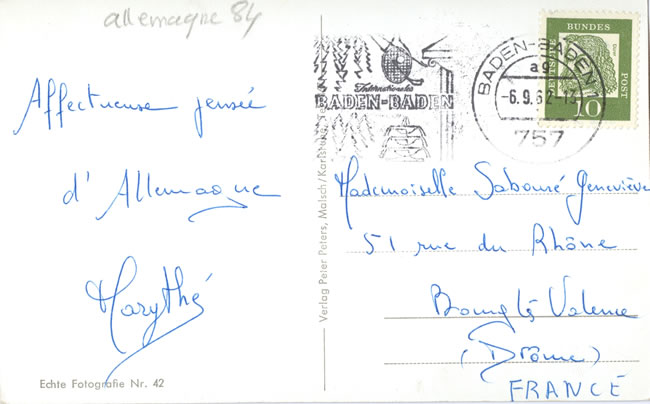 allemagne 84
Affectueuse pensée
d'Allemagne
Marythé
Echte Fotografie Nr. 42
Verlag Peter Peters, Malsch/Karlsruhe
Internationales
BADEN-BADEN
BADEN-BADEN
ag
-6.9.62-13
757
DEUTSCHE BUNDESPOST
10
Mademoiselle Sabouré Geneviève
51 rue du Rhône
Bourg lès Valence
(Drôme)
FRANCE